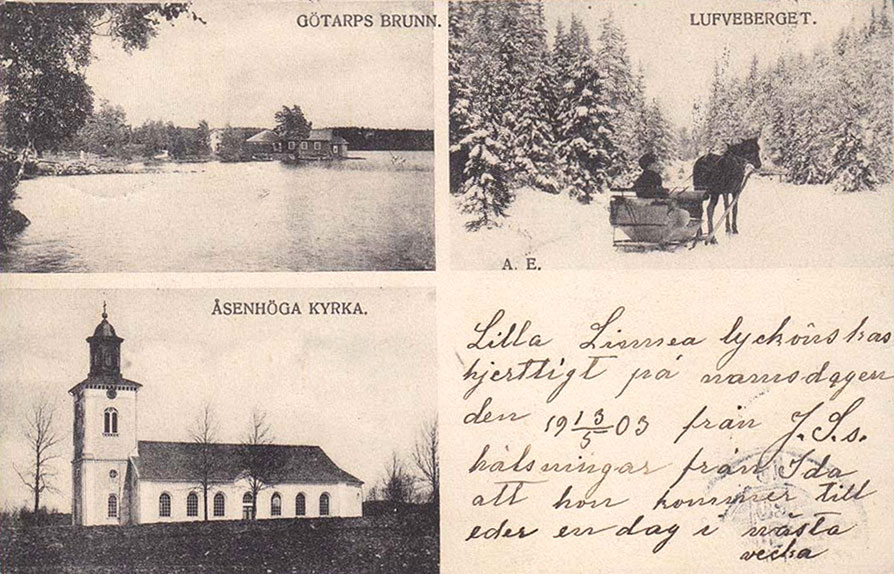 GÖTARPS BRUNN.
LUFVEBERGET.
A. E.
ÅSENHÖGA KYRKA.
Lilla Linnea lyckönskas
hjertligt på namsdagen
den 19 13/5 03 från J. S. s.
hälsningar från Ida
att hon kommer till
eder en dag i nästa
vecka